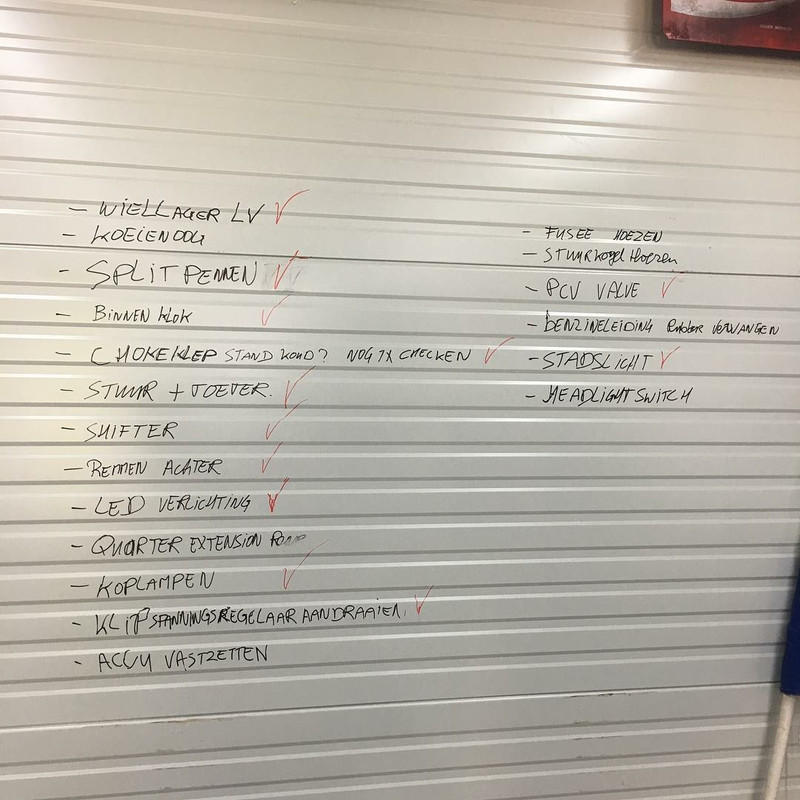 - WIELLAGER LV ✓
- KOEIENOOG
- SPLITPENNEN ✓
- BINNEN KLOK ✓
- CHOKEKLEP STAND KOUD? NOG 1X CHECKEN ✓
- STUUR + TOEVER. ✓
- SHIFTER ✓
- REMMEN ACHTER ✓
- LED VERLICHTING ✓
- QUARTER EXTENSION
- KOPLAMPEN ✓
- KLIP SPANNINGSREGELAAR AANDRAAIEN. ✓
- ACCU VASTZETTEN
- FUSEE HOEZEN
- STUURKOGEL HOEZEN
- PCV VALVE ✓
- BENZINELEIDING RUBBER VERVANGEN
- STADSLICHT ✓
- HEADLIGHT SWITCH